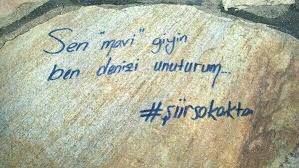 Sen "mavi" giyin
ben denizi unuturum...
#şiirsokakta